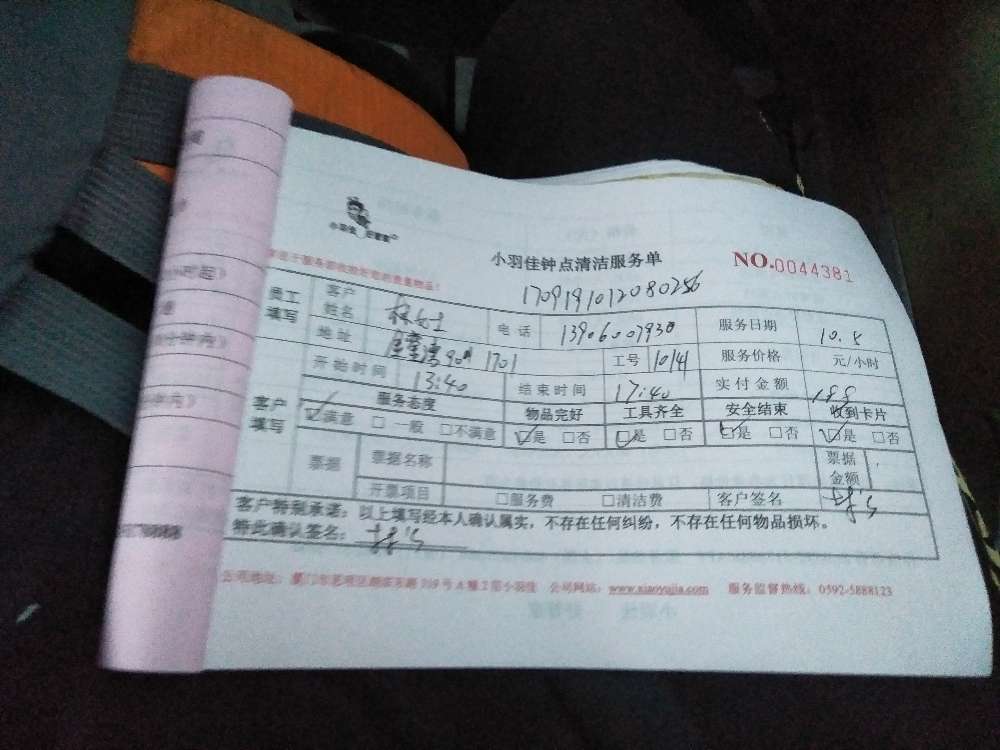 小羽佳钟点清洁服务单
NO.0044381
1709191012080256
员工填写
客户姓名 林女士 电话 13906007930 服务日期 10.5
地址 1701 工号 10141 服务价格 元/小时
开始时间 13:40 结束时间 17:40 实付金额 188
客户填写
服务态度 物品完好 工具齐全 安全结束 收到卡片
☑满意 □一般 □不满意 ☑是 □否 ☑是 □否 ☑是 □否 ☑是 □否
票据 票据名称 票据金额
开票项目 □服务费 □清洁费 客户签名
客户特别承诺：以上填写经本人确认属实，不存在任何纠纷，不存在任何物品损坏。
特此确认签名：
公司地址： 公司网站：www.xiaoyujia.com 服务监督热线：0592-5888123